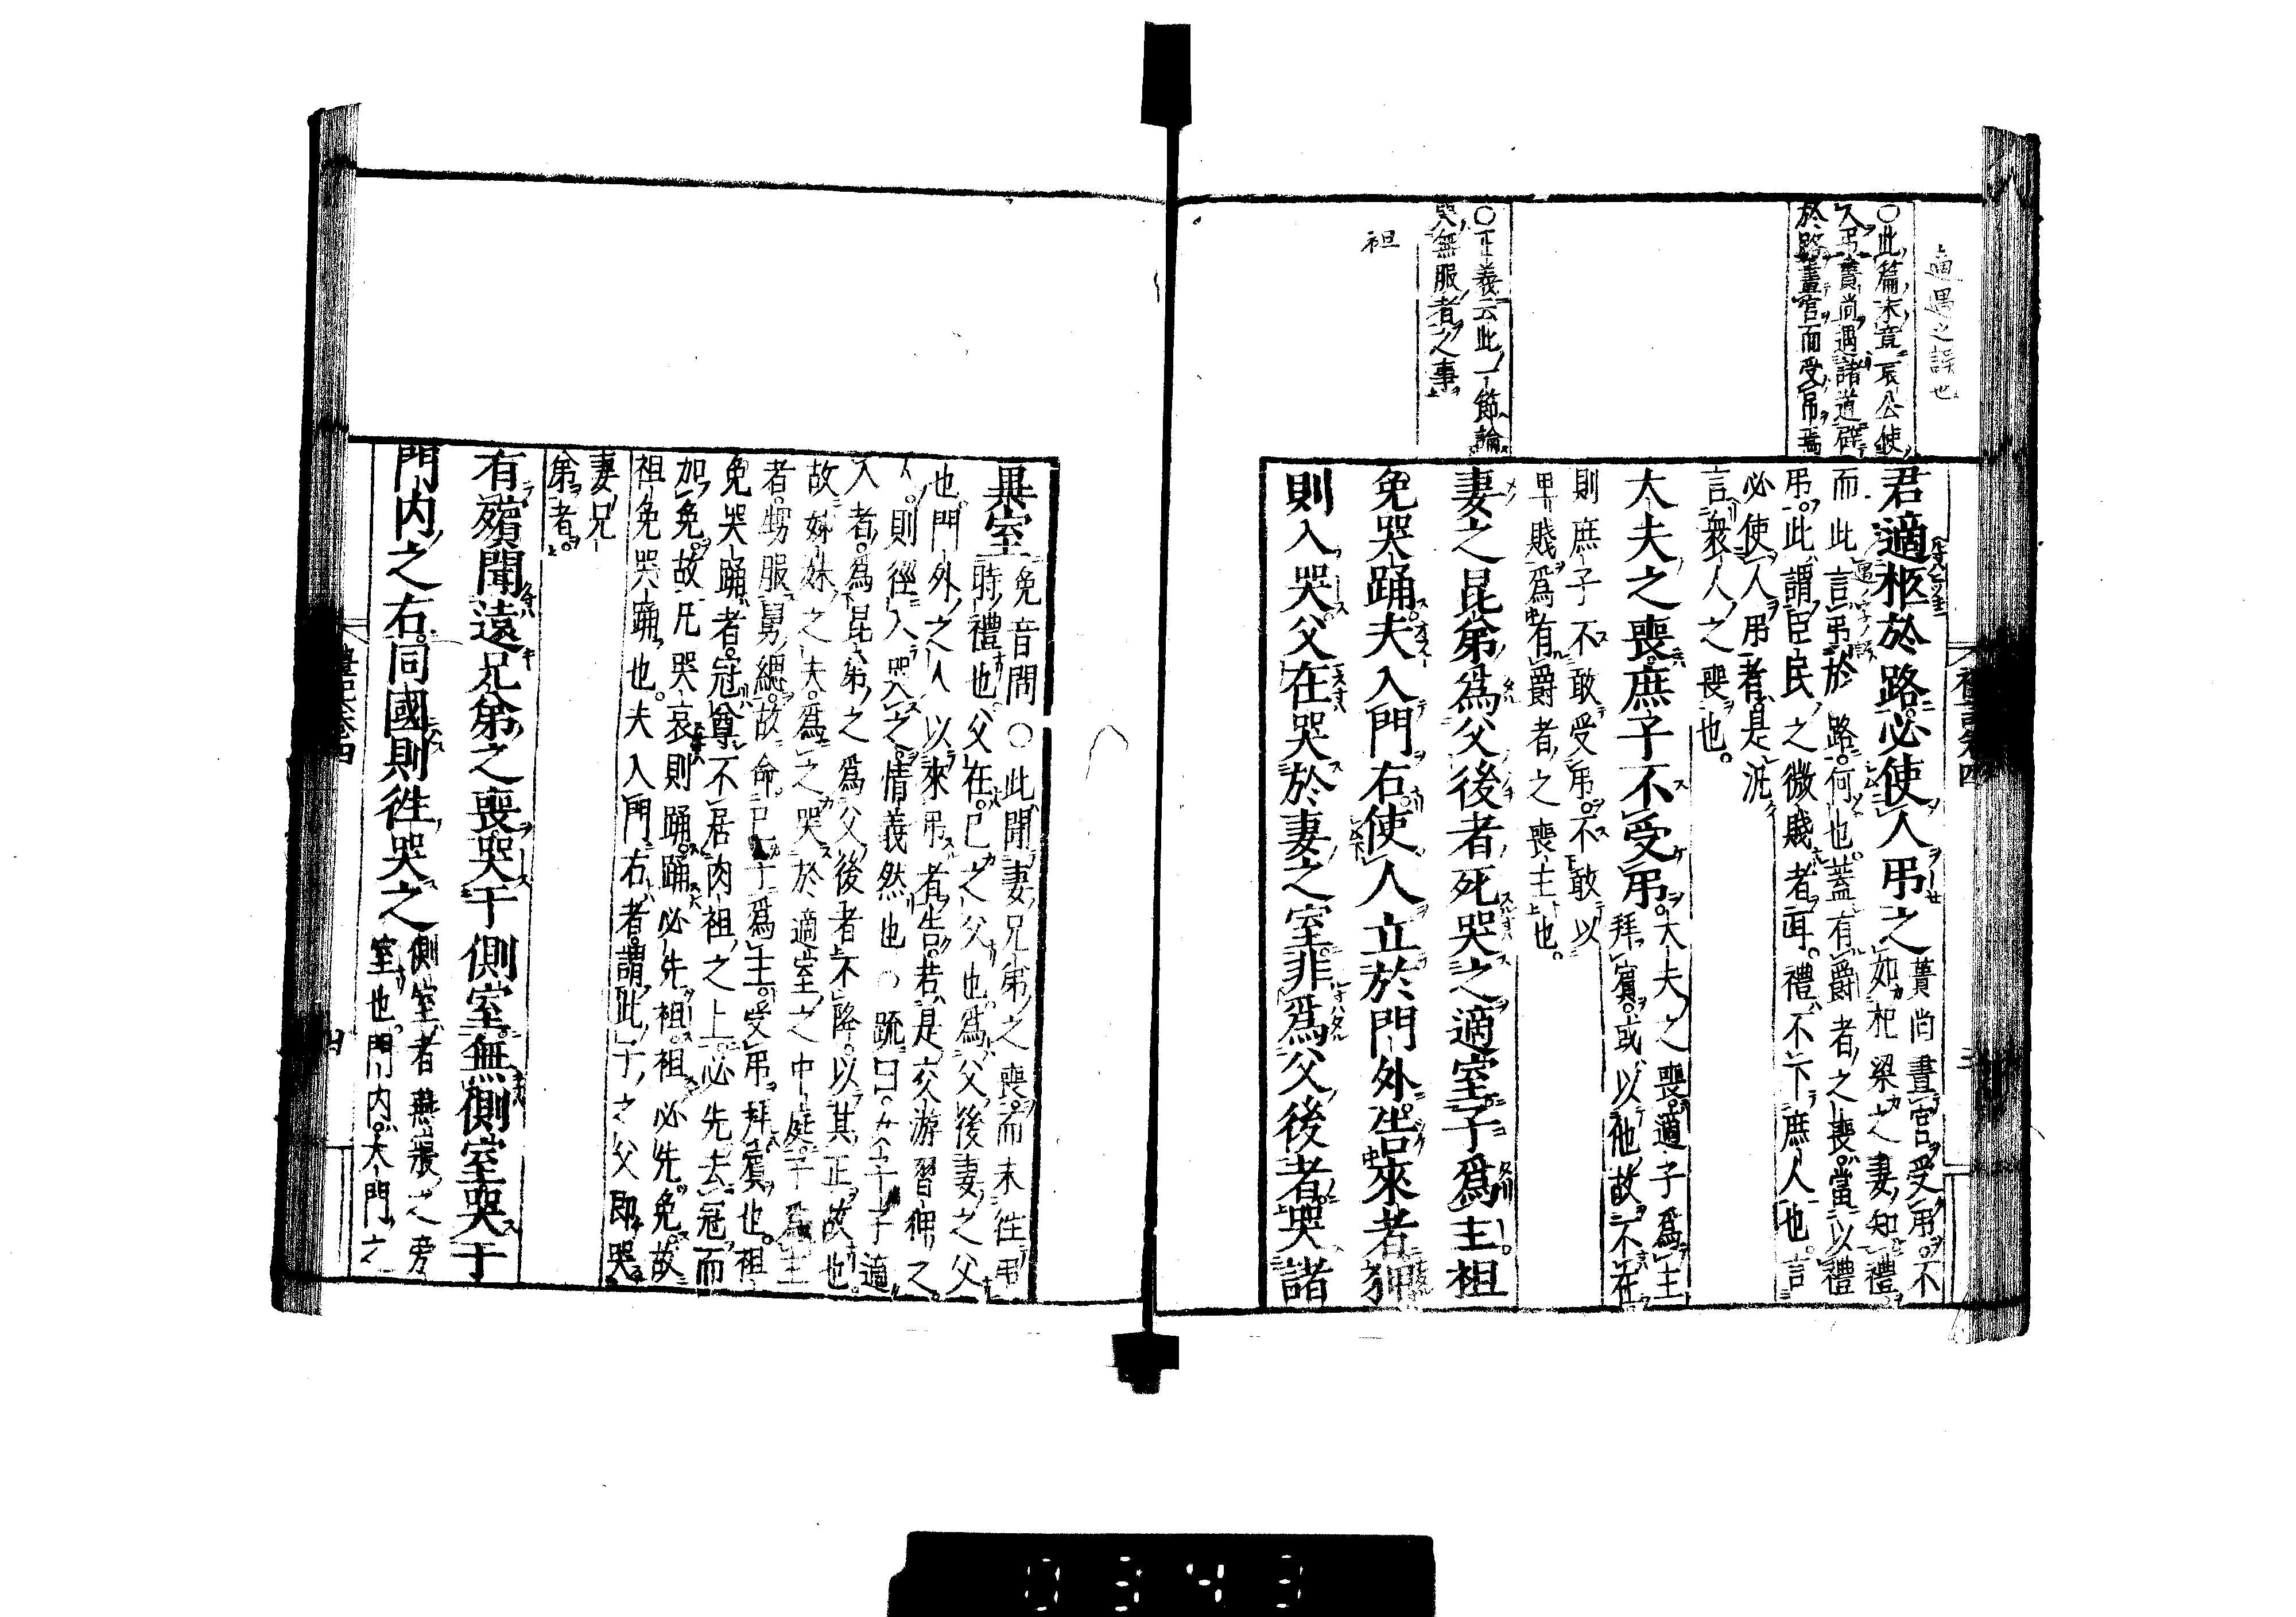 適遇之誤也
〇此篇末章哀公使
人弔蕢尚遇諸道辟
於路畫宮而受弔焉
〇正義云此一節論
哭無服者之事
袒
君適柩於路必使人弔之蕢尚畫宮受弔不
如杞梁之妻知禮
而此言弔於路何也蓋有爵者之喪當以禮
弔此謂臣民之微賤者耳禮不下庶人也言
必使人弔者是汎
言衆人之喪也
大夫之喪庶子不受弔大夫之喪適子爲主
拜賓或以他故不在
則庶子不敢受弔不敢以
卑賤爲有爵者之喪主也
妻之昆弟爲父後者死哭之適室子爲主袒
免哭踊夫入門右使人立於門外告來者狎
則入哭父在哭於妻之室非爲父後者哭諸
異室免音問〇此聞妻兄弟之喪而未往弔
時禮也父在己之父也爲父後妻之父
也門外之人以來弔者告若是交游習狎之
人則徑入哭之情義然也〇疏曰
子適
人者爲昆弟之爲父後者不降以其正故也
故姊妹之夫爲之哭於適室之中庭子爲主
者甥服舅緦故命己子爲主受弔拜賓也袒
免哭踊者冠尊不居肉袒之上必先去冠而
加免故凡哭哀則踊踊必先袒袒必先免故
袒免哭踊也夫入門右者謂此子之父即哭
妻兄
弟者
有殯聞遠兄弟之喪哭于側室無側室哭于
門内之右同國則徃哭之側室者燕寢之旁
室也門内大門之
0343